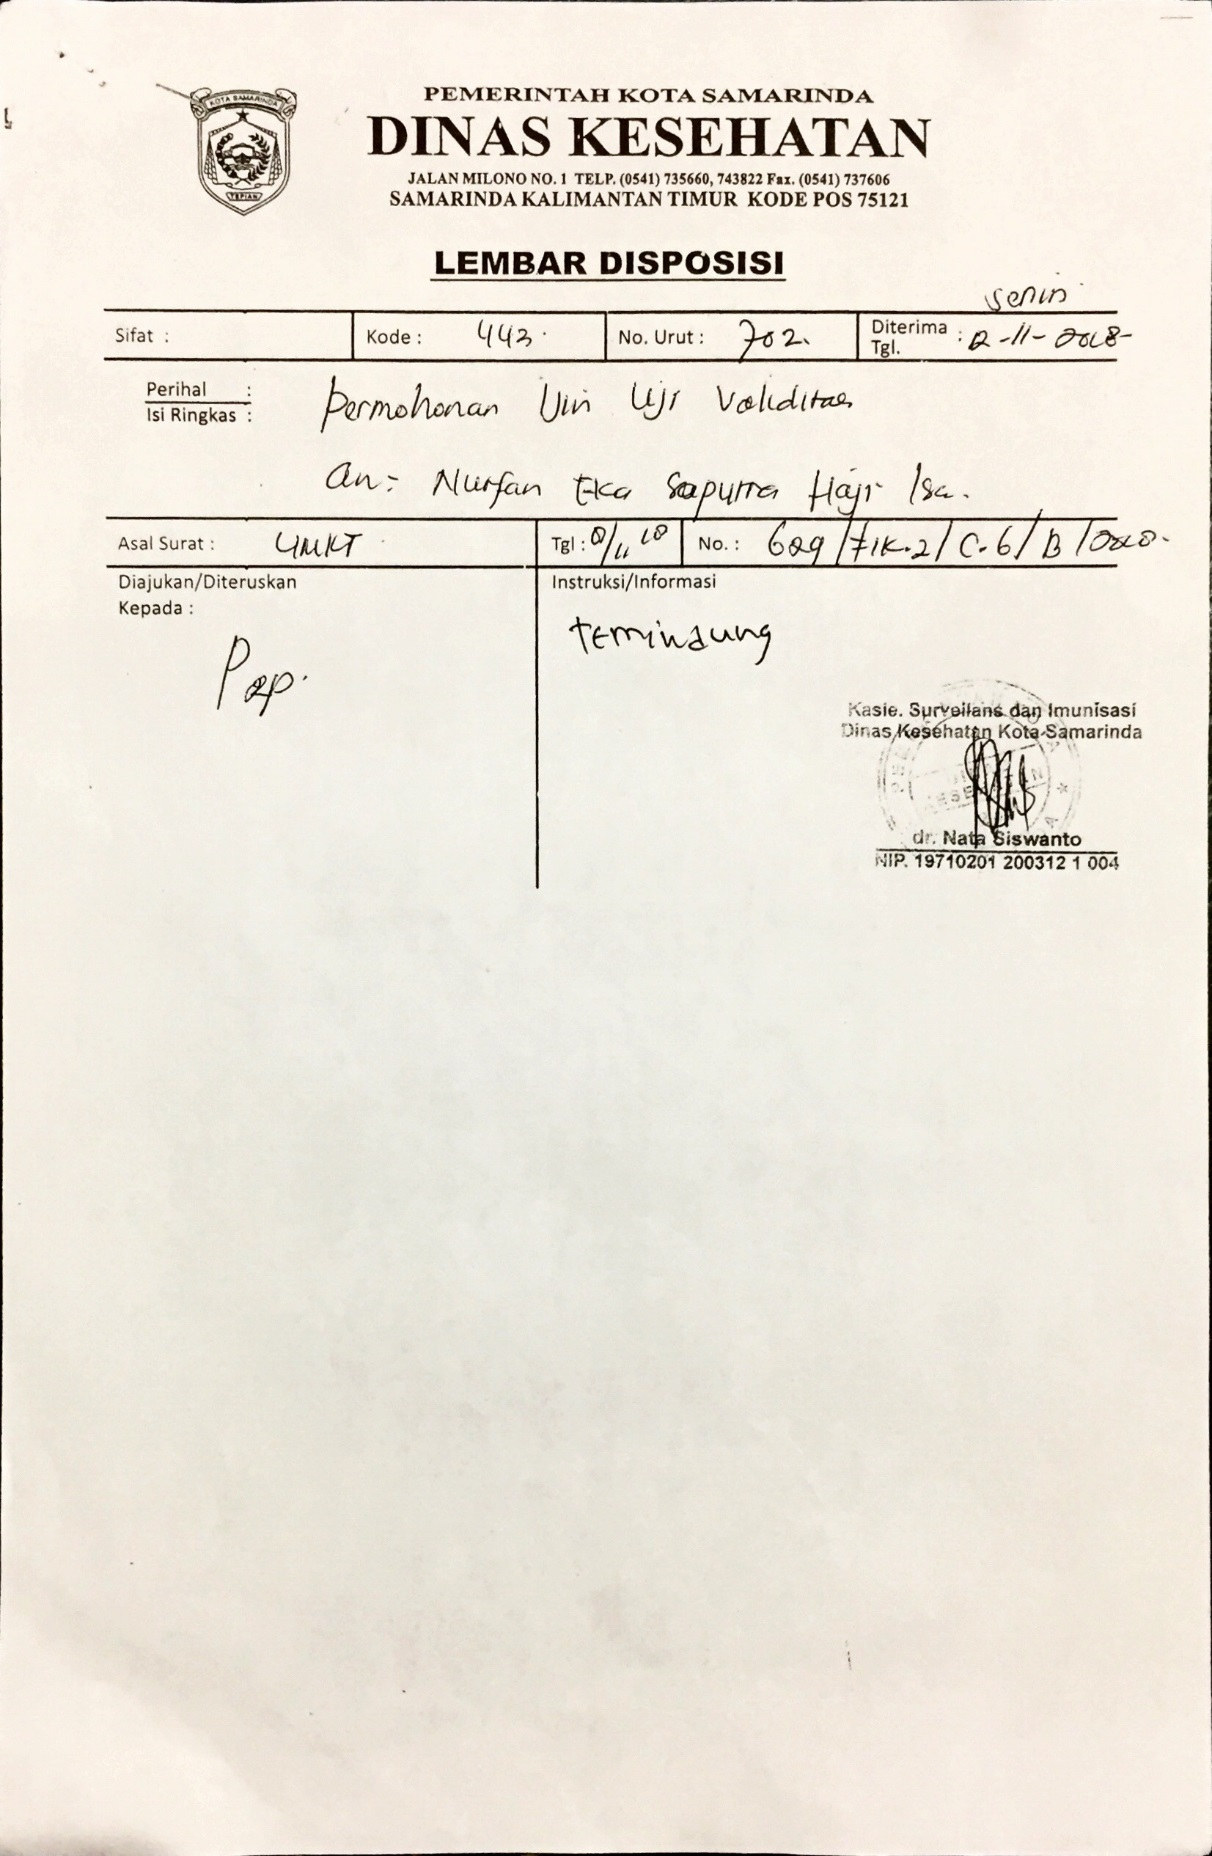 KOTA SAMARINDA
TEPIAN
PEMERINTAH KOTA SAMARINDA
DINAS KESEHATAN
JALAN MILONO NO. 1 TELP. (0541) 735660, 743822 Fax. (0541) 737606
SAMARINDA KALIMANTAN TIMUR KODE POS 75121
LEMBAR DISPOSISI
Senin
Sifat : Kode : 443 No. Urut : 702. Diterima Tgl. :
Perihal :
Isi Ringkas : Permohonan Uji Validitas
an : Nurfan Eka Saputra Haji Isa.
Asal Surat : UMKT Tgl : No. : 629/FIK.2/C.6/B/
Diajukan/Diteruskan
Kepada :
Instruksi/Informasi
temindung
Kasie. Surveilans dan Imunisasi
Dinas Kesehatan Kota Samarinda
dr. Nata Siswanto
NIP. 19710201 200312 1 004